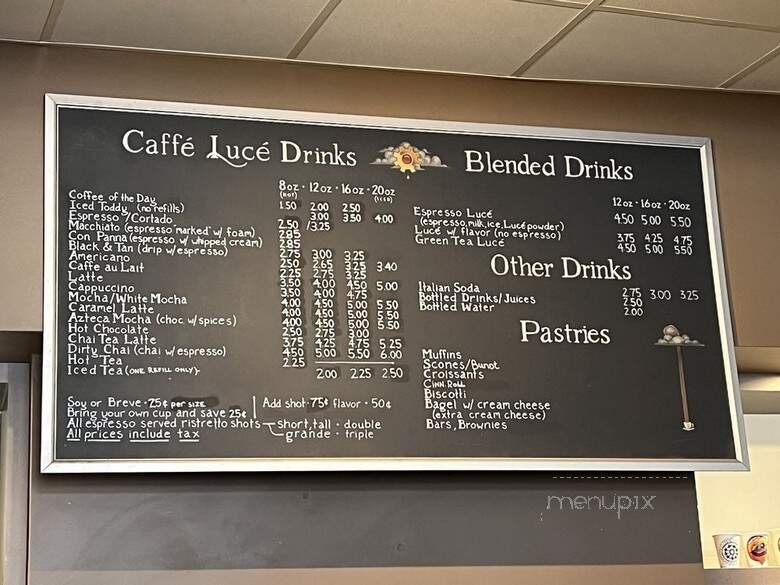 Caffé Lucé Drinks
8oz · 12oz · 16oz · 20oz
(HOT) (ICED)
Coffee of the Day 1.50 2.00 2.50
Iced Toddy (no refills) 3.00 3.50 4.00
Espresso/Cortado 2.50 /3.25
Macchiato (espresso "marked" w/ foam) 2.95
Con Panna (espresso w/ whipped cream) 2.85
Black & Tan (drip w/espresso) 2.75 3.00 3.25
Americano 2.50 2.65 3.25 3.40
Caffe au Lait 2.25 2.75 3.25
Latte 3.50 4.00 4.50 5.00
Cappuccino 3.50 4.00 4.75
Mocha/White Mocha 4.00 4.50 5.00 5.50
Caramel Latte 4.00 4.50 5.00 5.50
Azteca Mocha (choc w/spices) 4.00 4.50 5.00 5.50
Hot Chocolate 2.50 2.75 3.00
Chai Tea Latte 3.75 4.25 4.75 5.25
Dirty Chai (chai w/espresso) 4.50 5.00 5.50 6.00
Hot Tea 2.25
Iced Tea (ONE REFILL ONLY) 2.00 2.25 2.50
Soy or Breve · 25¢ per size
Bring your own cup and save 25¢
All espresso served ristretto shots — short, tall · double
grande · triple
All prices include tax
Add shot · 75¢ flavor · 50¢
Blended Drinks
12oz · 16oz · 20oz
Espresso Lucé 4.50 5.00 5.50
(espresso, milk, ice, Lucé powder)
Lucé w/ flavor (no espresso) 3.75 4.25 4.75
Green Tea Lucé 4.50 5.00 5.50
Other Drinks
Italian Soda 2.75 3.00 3.25
Bottled Drinks/Juices 2.50
Bottled Water 2.00
Pastries
Muffins
Scones/Bunot
Croissants
Cinn. Roll
Biscotti
Bagel w/ cream cheese
(extra cream cheese)
Bars, Brownies
menupix